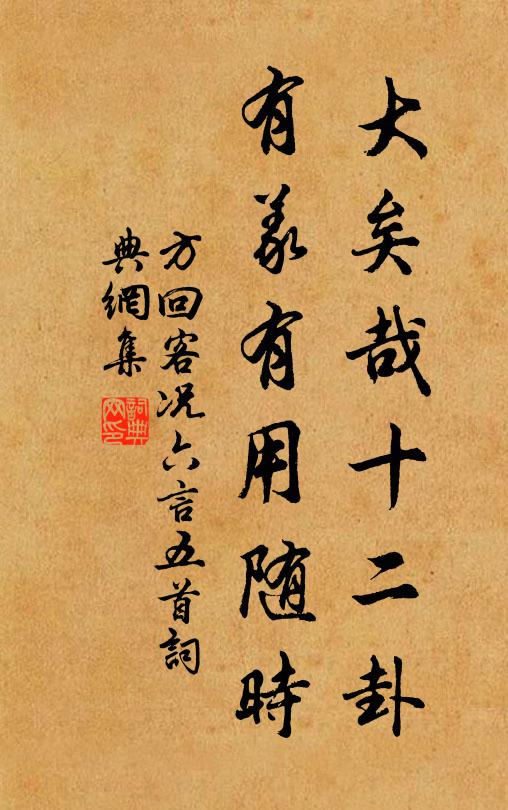 大矣哉十二卦
有義有用随時
方回客况六言五首詞
典網集
詞典
网印